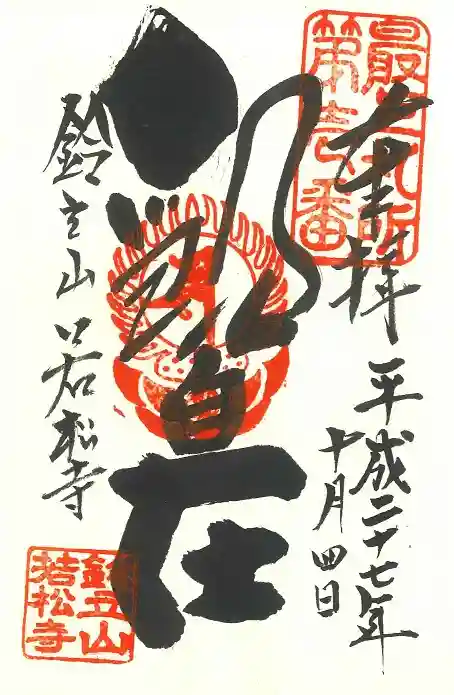 最上札所
第壱番
奉拝
平成二十七年
十月四日
観自在
鈴立山
若松寺
鈴立山
若松寺